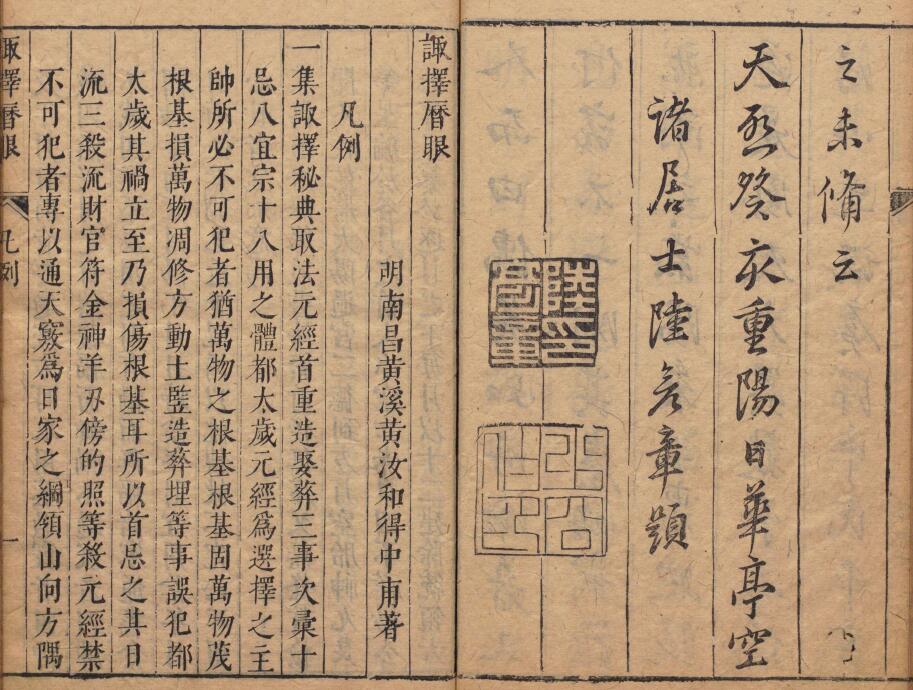 之未脩云
天啓癸亥重陽日華亭空
諸居士陸彥章題
陸彥章印
諏擇曆眼
凡例
明南昌黃溪黃汝和得中甫著
一集諏擇秘典取法元經首重造娶葬三事次彙十
忌八宜宗十八用之體都太歲元經爲選擇之主
帥所必不可犯者猶萬物之根基根基固萬物茂
根基損萬物凋修方動土豎造葬埋等事誤犯都
太歲其禍立至乃損傷根基耳所以首忌之其日
流三殺流財官符金神羊刃傍的照等殺元經禁
不可犯者專以通天竅爲日家之綱領山向方隅
諏擇曆眼
凡例
一